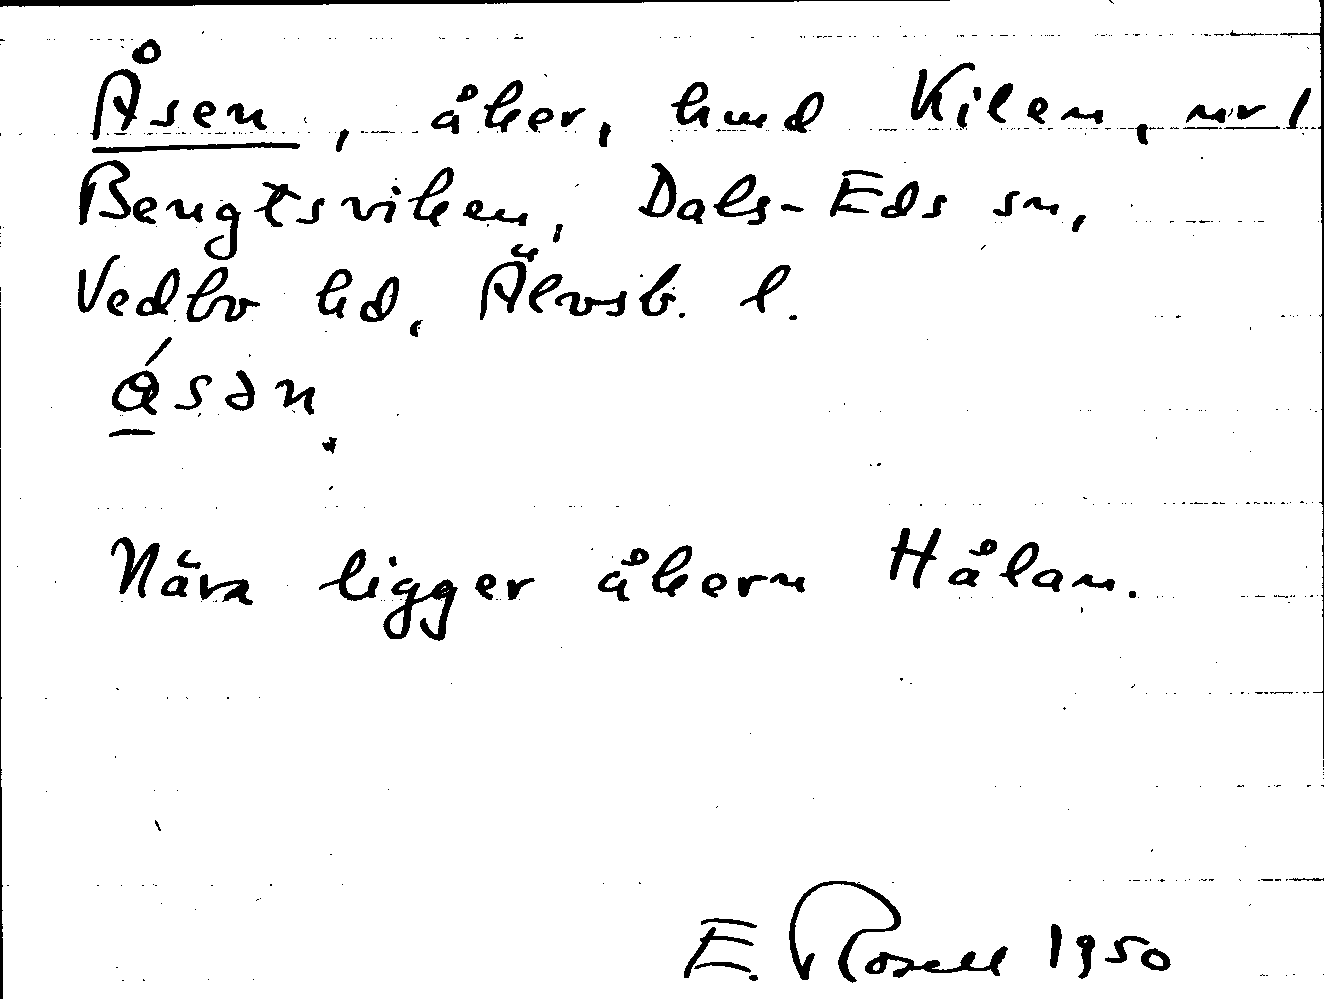 Åsen, åker, hmd Kilen, nr 1
Bengtsviken, Dals-Eds sn,
Vedbo hd, Älvsb. l.
ǻsən.
Nära ligger åkern Hålan.
E. Rosell 1950